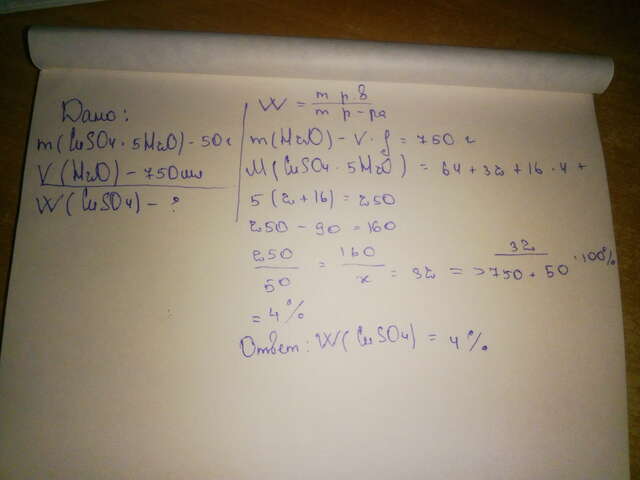 Дано:
m(CuSO4 · 5H2O) - 50 г
V(H2O) - 750 мл
W(CuSO4) - ?
W = m р.в / m р-ра
m(H2O) - V · ρ = 750 г
M(CuSO4 · 5H2O) = 64 + 32 + 16 · 4 +
5(2 + 16) = 250
250 - 90 = 160
250/50 = 160/x = 32 => 32/750 + 50 · 100%
= 4%
Ответ: W(CuSO4) = 4%